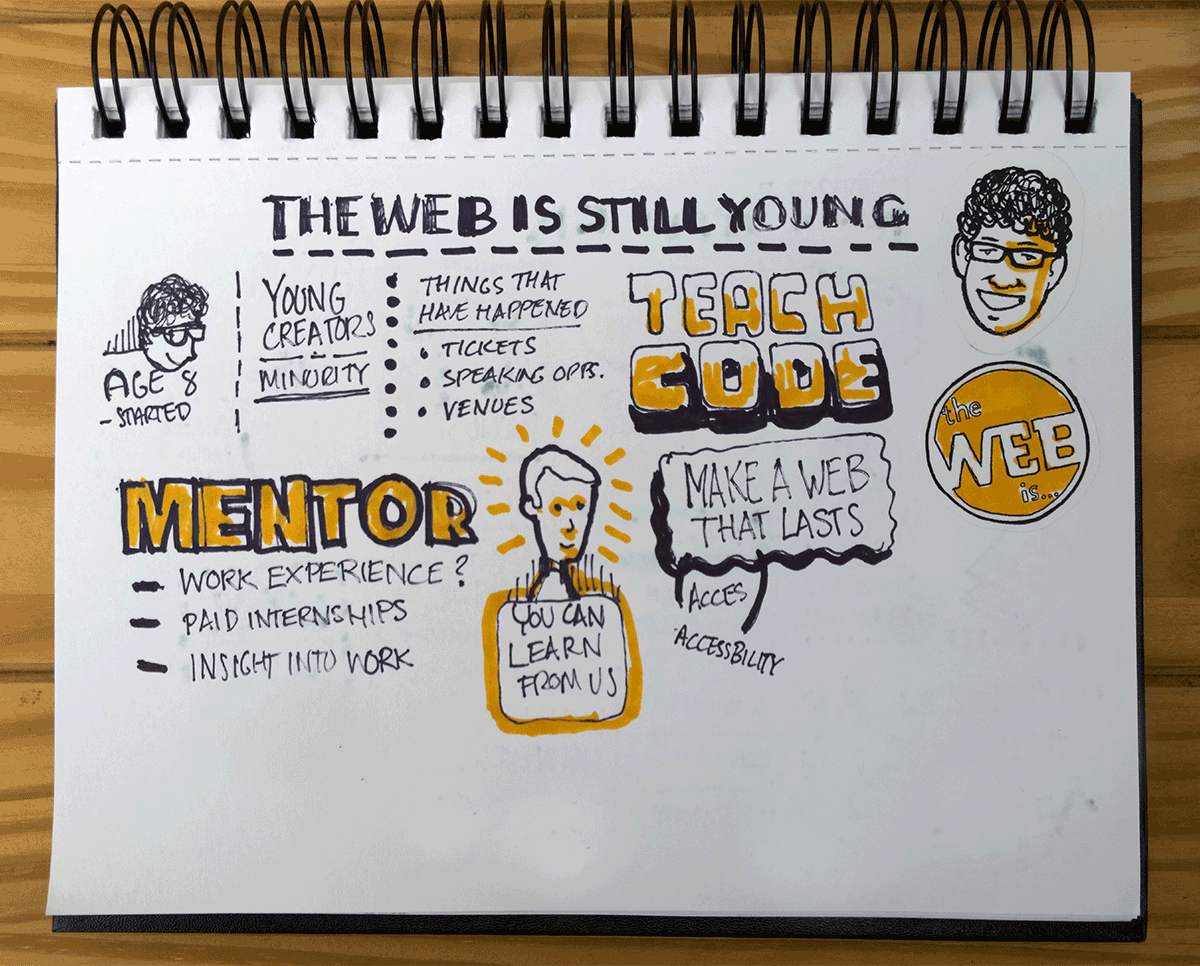 THE WEB IS STILL YOUNG
AGE 8
- STARTED
YOUNG
CREATORS
MINORITY
THINGS THAT
HAVE HAPPENED
• TICKETS
• SPEAKING OPPS.
• VENUES
TEACH
CODE
the
WEB
is...
MENTOR
- WORK EXPERIENCE?
- PAID INTERNSHIPS
- INSIGHT INTO WORK
YOU CAN
LEARN
FROM US
MAKE A WEB
THAT LASTS
ACCES
ACCESSBILITY